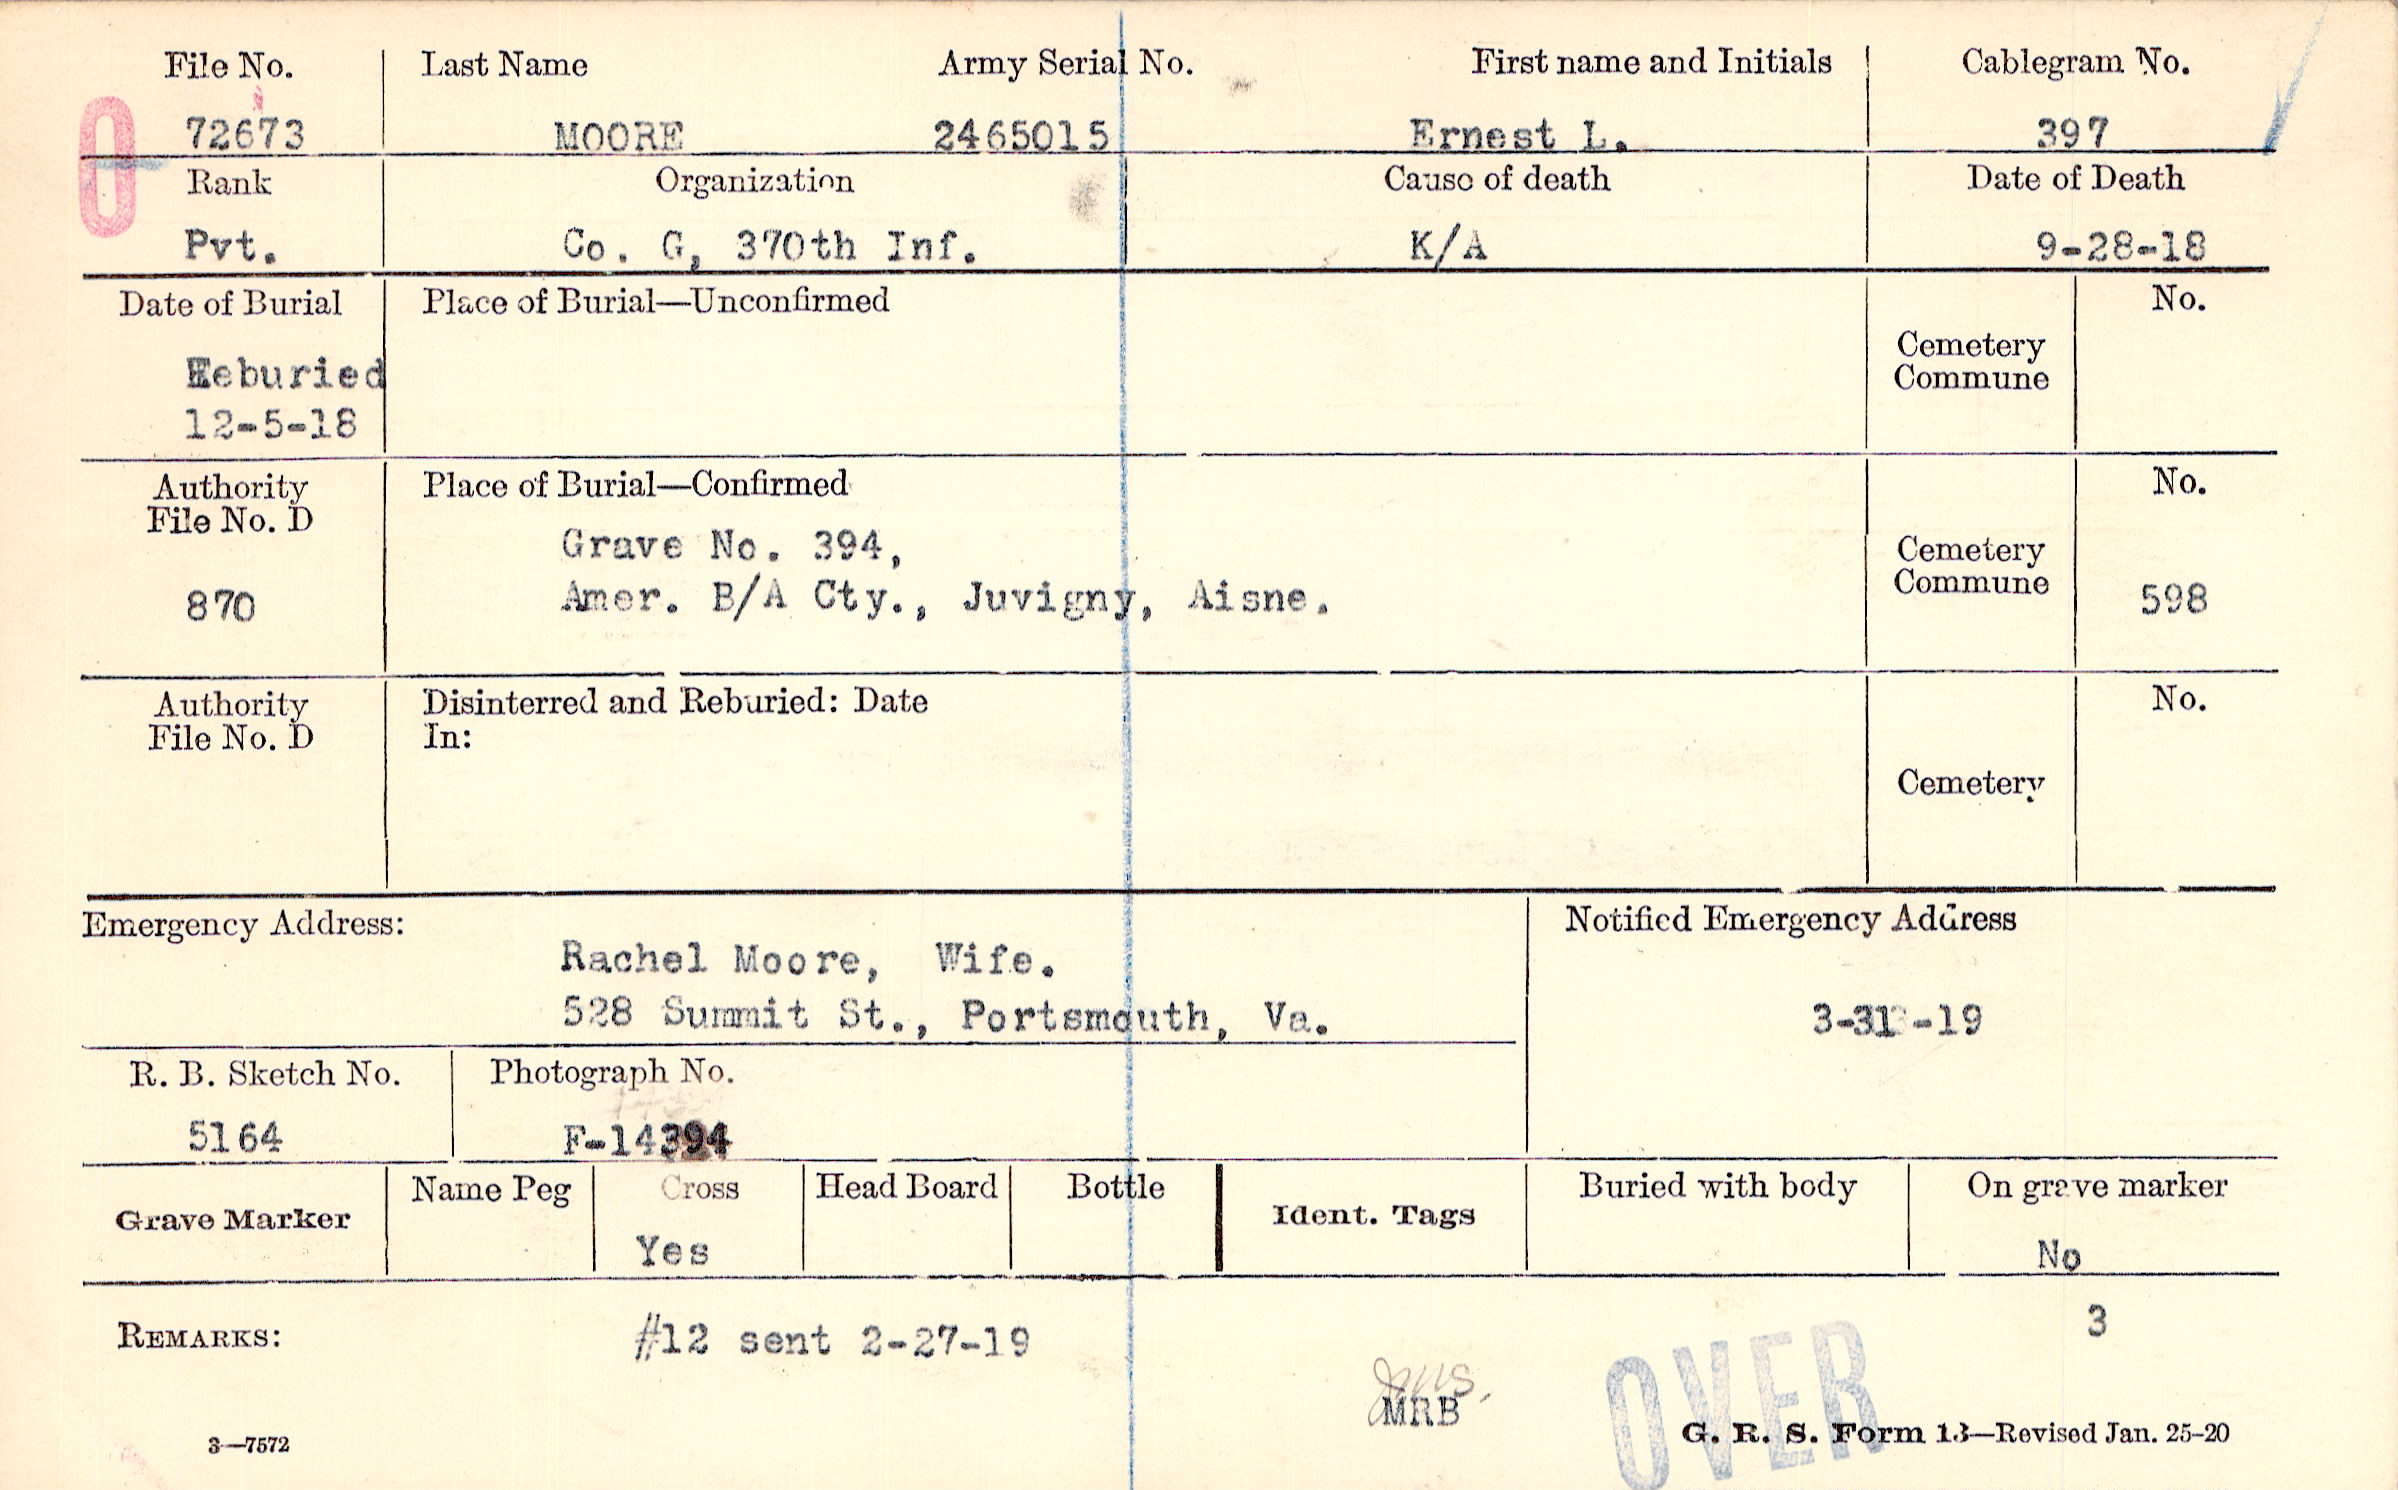 File No. Last Name Army Serial No. First name and Initials Cablegram No.
0
72673 MOORE 2465015 Ernest L. 397
Rank Organization Cause of death Date of Death
Pvt. Co. G, 370th Inf. K/A 9-28-18
Date of Burial Place of Burial—Unconfirmed No.
Cemetery
Commune
Reburied
12-5-18
Authority Place of Burial—Confirmed No.
File No. D
Grave No. 394,
Cemetery
Commune
870 Amer. B/A Cty., Juvigny, Aisne. 598
Authority Disinterred and Reburied: Date No.
File No. D In:
Cemetery
Emergency Address: Notified Emergency Address
Rachel Moore, Wife.
528 Summit St., Portsmouth, Va. 3-31-19
R. B. Sketch No. Photograph No.
5164 F-14394
Grave Marker Name Peg Cross Head Board Bottle Ident. Tags Buried with body On grave marker
Yes No
3
REMARKS: #12 sent 2-27-19
MRB
OVER
3—7572 G. R. S. Form 13—Revised Jan. 25-20